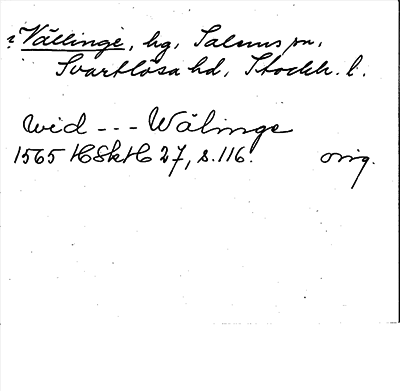 Vällinge, hg, Salems sn,
Svartlösa hd, Stockh. l.
wid --- Wälinge
1565 HSkH 27, s. 116. orig.